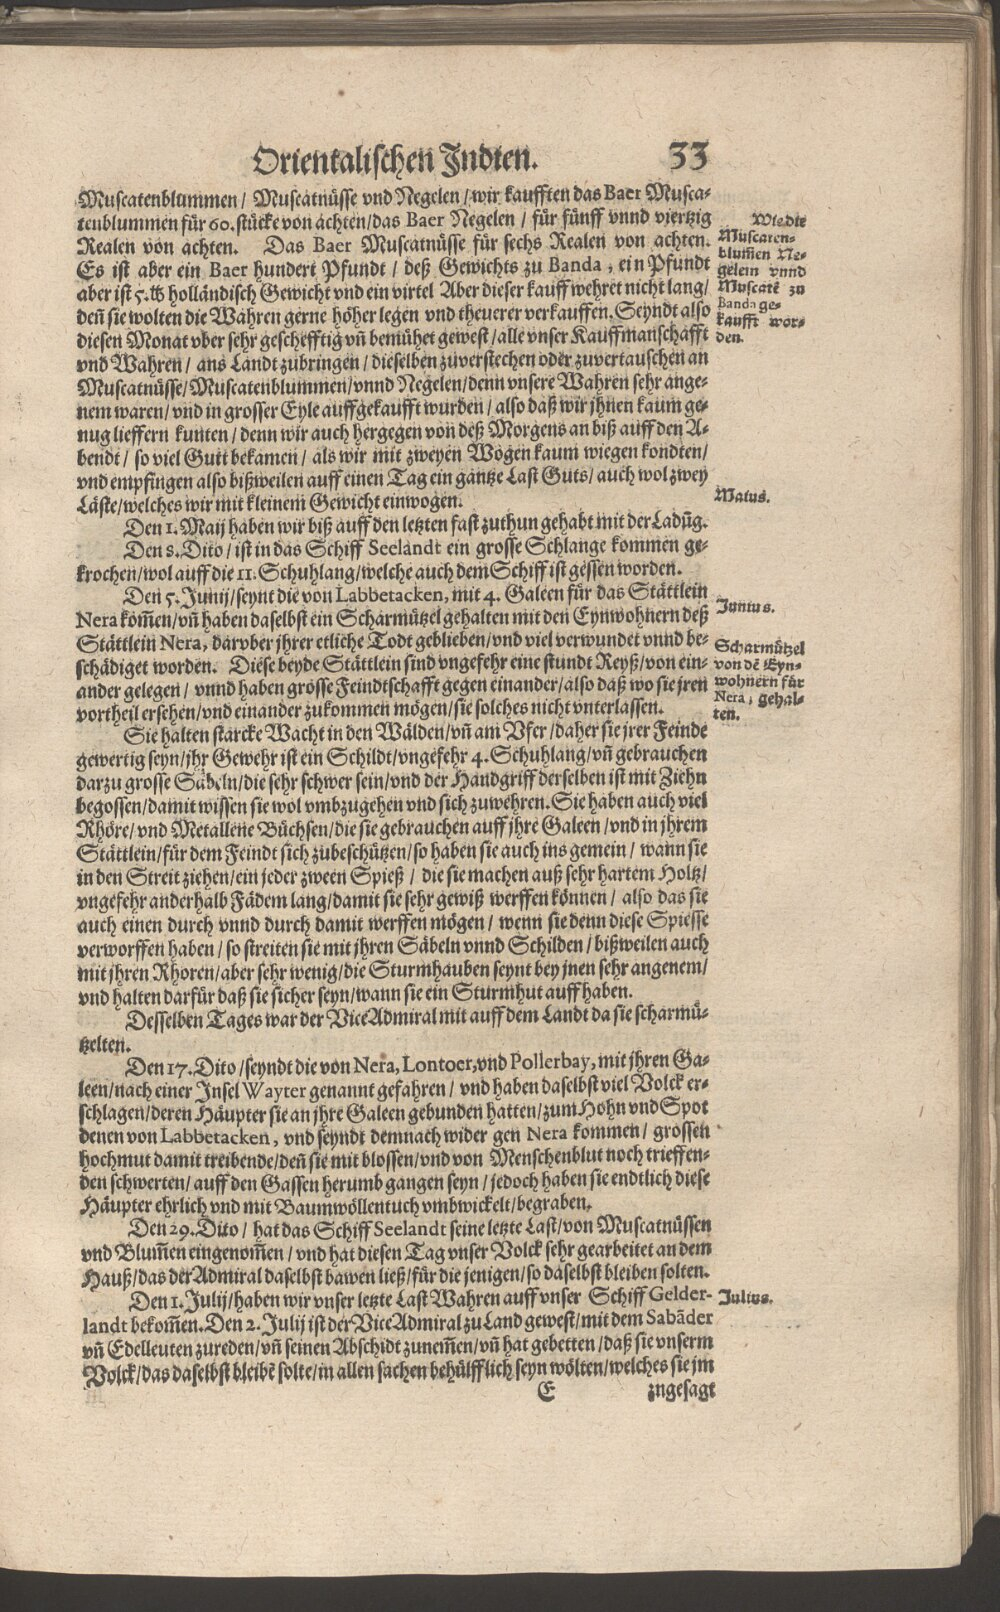 Orientalischen Indien. 33
Muscatenblummen / Muscatnüsse vnd Negelen / wir kaufften das Baer Musca-
tenblummen für 60. stücke von achten / das Baer Negelen / für fünff vnnd viertzig
Realen von achten. Das Baer Muscatnüsse für sechs Realen von achten.
Es ist aber ein Baer hundert Pfundt / deß Gewichts zu Banda, ein Pfundt
aber ist 5. ℔ holländisch Gewicht vnd ein virtel Aber dieser kauff wehret nicht lang /
deñ sie wolten die Wahren gerne höher legen vnd theuerer verkauffen. Seyndt also
diesen Monat vber sehr geschefftig vñ bemühet gewest / alle vnser Kauffmanschafft
vnd Wahren / ans Landt zubringen / dieselben zuverstechen oder zuvertauschen an
Muscatnüsse / Muscatenblummen / vnnd Negelen / denn vnsere Wahren sehr ange-
nem waren / vnd in grosser Eyle auffgekaufft wurden / also daß wir jhnen kaum ge-
nug lieffern kunten / denn wir auch hergegen von deß Morgens an biß auff den A-
bendt / so viel Gutt bekamen / als wir mit zweyen Wogen kaum wiegen kondten /
vnd empfingen also bißweilen auff einen Tag ein gantze Last Guts / auch wol zwey
Läste / welches wir mit kleinem Gewicht einwogen.
Den 1. Maij haben wir biß auff den letzten fast zuthun gehabt mit der Ladũg.
Den 8. Dito / ist in das Schiff Seelandt ein grosse Schlange kommen ge-
krochen / wol auff die 11. Schuhlang / welche auch dem Schiff ist gessen worden.
Den 5. Junij / seynt die von Labbetacken, mit 4. Galeen für das Stättlein
Nera kom̃en / vñ haben daselbst ein Scharmützel gehalten mit den Eynwohnern deß
Stättlein Nera, darvber jhrer etliche Todt geblieben / vnd viel verwundet vnnd be-
schädiget worden. Diese beyde Stättlein sind vngefehr eine stundt Reyß / von ein-
ander gelegen / vnnd haben grosse Feindtschafft gegen einander / also daß wo sie jren
vortheil ersehen / vnd einander zukommen mögen / sie solches nicht vnterlassen.
Sie halten starcke Wacht in den Wälden / vñ am Vfer / daher sie jrer Feinde
gewertig seyn / jhr Gewehr ist ein Schildt / vngefehr 4. Schuhlang / vñ gebrauchen
darzu grosse Säbeln / die sehr schwer sein / vnd der Handgriff derselben ist mit Ziehn
begossen / damit wissen sie wol vmbzugehen vnd sich zuwehren. Sie haben auch viel
Rhöre / vnd Metallene Büchsen / die sie gebrauchen auff jhre Galeen / vnd in jhrem
Stättlein / für dem Feindt sich zubeschützen / so haben sie auch ins gemein / wann sie
in den Streit ziehen / ein jeder zween Spieß / die sie machen auß sehr hartem Holtz /
vngefehr anderhalb Fädem lang / damit sie sehr gewiß werffen können / also das sie
auch einen durch vnnd durch damit werffen mögen / wenn sie denn diese Spiesse
verworffen haben / so streiten sie mit jhren Säbeln vnnd Schilden / bißweilen auch
mit jhren Rhoren / aber sehr wenig / die Sturmhauben seynt bey jnen sehr angenem /
vnd halten darfür daß sie sicher seyn / wann sie ein Sturmhut auff haben.
Desselben Tages war der Vice Admiral mit auff dem Landt da sie scharmü-
tzelten.
Den 17. Dito / seyndt die von Nera, Lontoer, vnd Pollerbay, mit jhren Ga-
leen / nach einer Insel Wayter genannt gefahren / vnd haben daselbst viel Volck er-
schlagen / deren Häupter sie an jhre Galeen gebunden hatten / zum Hohn vnd Spot
denen von Labbetacken, vnd seyndt demnach wider gen Nera kommen / grossen
hochmut damit treibende / deñ sie mit blossen / vnd von Menschenblut noch trieffen-
den schwerten / auff den Gassen herumb gangen seyn / jedoch haben sie endtlich diese
Häupter ehrlich vnd mit Baumwöllentuch vmbwickelt / begraben.
Den 29. Dito / hat das Schiff Seelandt seine letzte Last / von Muscatnüssen
vnd Blum̃en eingenom̃en / vnd hat diesen Tag vnser Volck sehr gearbeitet an dem
Hauß / das der Admiral daselbst bawen ließ / für die jenigen / so daselbst bleiben solten.
Den 1. Julij / haben wir vnser letzte Last Wahren auff vnser Schiff Gelder-
landt bekom̃en. Den 2. Julij ist der Vice Admiral zu Land gewest / mit dem Sabãder
vñ Edelleuten zureden / vñ seinen Abschidt zunem̃en / vñ hat gebetten / daß sie vnserm
Volck / das daselbst bleibẽ solte / in allen sachen behülfflich seyn wölten / welches sie jm
E zugesagt
Wie die
Muscaten-
blum̃en Ne-
gelein vnnd
Muscatẽ zu
Banda ge-
kaufft wor-
den.
Maius.
Junius.
Scharmützel
von dẽ Eyn-
wohnern für
Nera, gehal-
ten.
Julius.